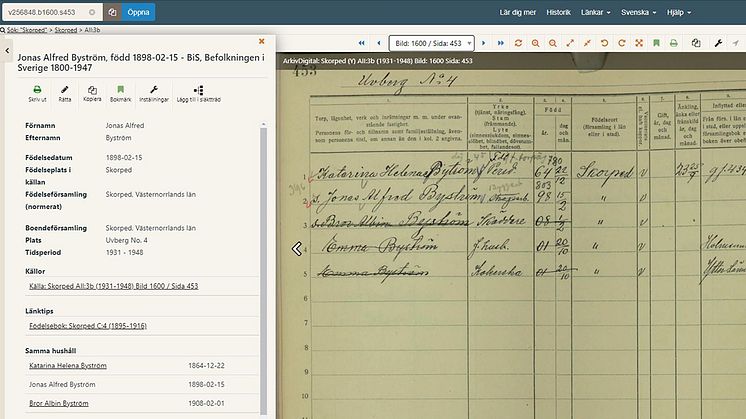 v256848.b1600.s453
Öppna
Lär dig mer Historik Länkar Svenska Hjälp
Sök: "Skorped" > Skorped > AII:3b
Bild: 1600 / Sida: 453
Jonas Alfred Byström, född 1898-02-15 - BiS, Befolkningen i
Sverige 1800-1947
Skriv ut Rätta Kopiera Bokmärk Inställningar Lägg till i släktträd
Förnamn Jonas Alfred
Efternamn Byström
Födelsedatum 1898-02-15
Födelseplats i
källan Skorped
Födelseförsamling
(normerat) Skorped, Västernorrlands län
Boendeförsamling Skorped, Västernorrlands län
Plats Uvberg No. 4
Tidsperiod 1931 - 1948
Källor
Källa: Skorped AII:3b (1931-1948) Bild 1600 / Sida 453
Länktips
Födelsebok: Skorped C:4 (1895-1916)
Samma hushåll
Katarina Helena Byström 1864-12-22
Jonas Alfred Byström 1898-02-15
Bror Albin Byström 1908-02-01
ArkivDigital: Skorped (Y) AII:3b (1931-1948) Bild: 1600 Sida: 453
453
Uvberg No 4
Torp, lägenhet, verk och inrättningar m. m. under ovan-
stående fastighet.
Personens för- och tillnamn samt familjeställning, även-
som personens titel, om annan än den i kol. 2 angivna.
Yrke
(tjänst, näringsfång).
Stam
(främmande).
Lyte
(sinnessjukdom, sinnes-
slöhet, blindhet, dövstumhet,
fallandesot).
Född
år.
dag och mån.
Födelseort
(församling i län
eller i stad).
Gift, år, dag och mån.
1 Katarina Helena Byström 64 22/12 Skorped v 23 25/7
2 s. Jonas Alfred Byström 98 15/2 " v
3 s. Bror Albin Byström 08 1/2 " v
4 Emma Byström f. hust. 01 20/10 " v
5 Emma Byström Kokerska 01 20/10 " v
6
7
8
9
10